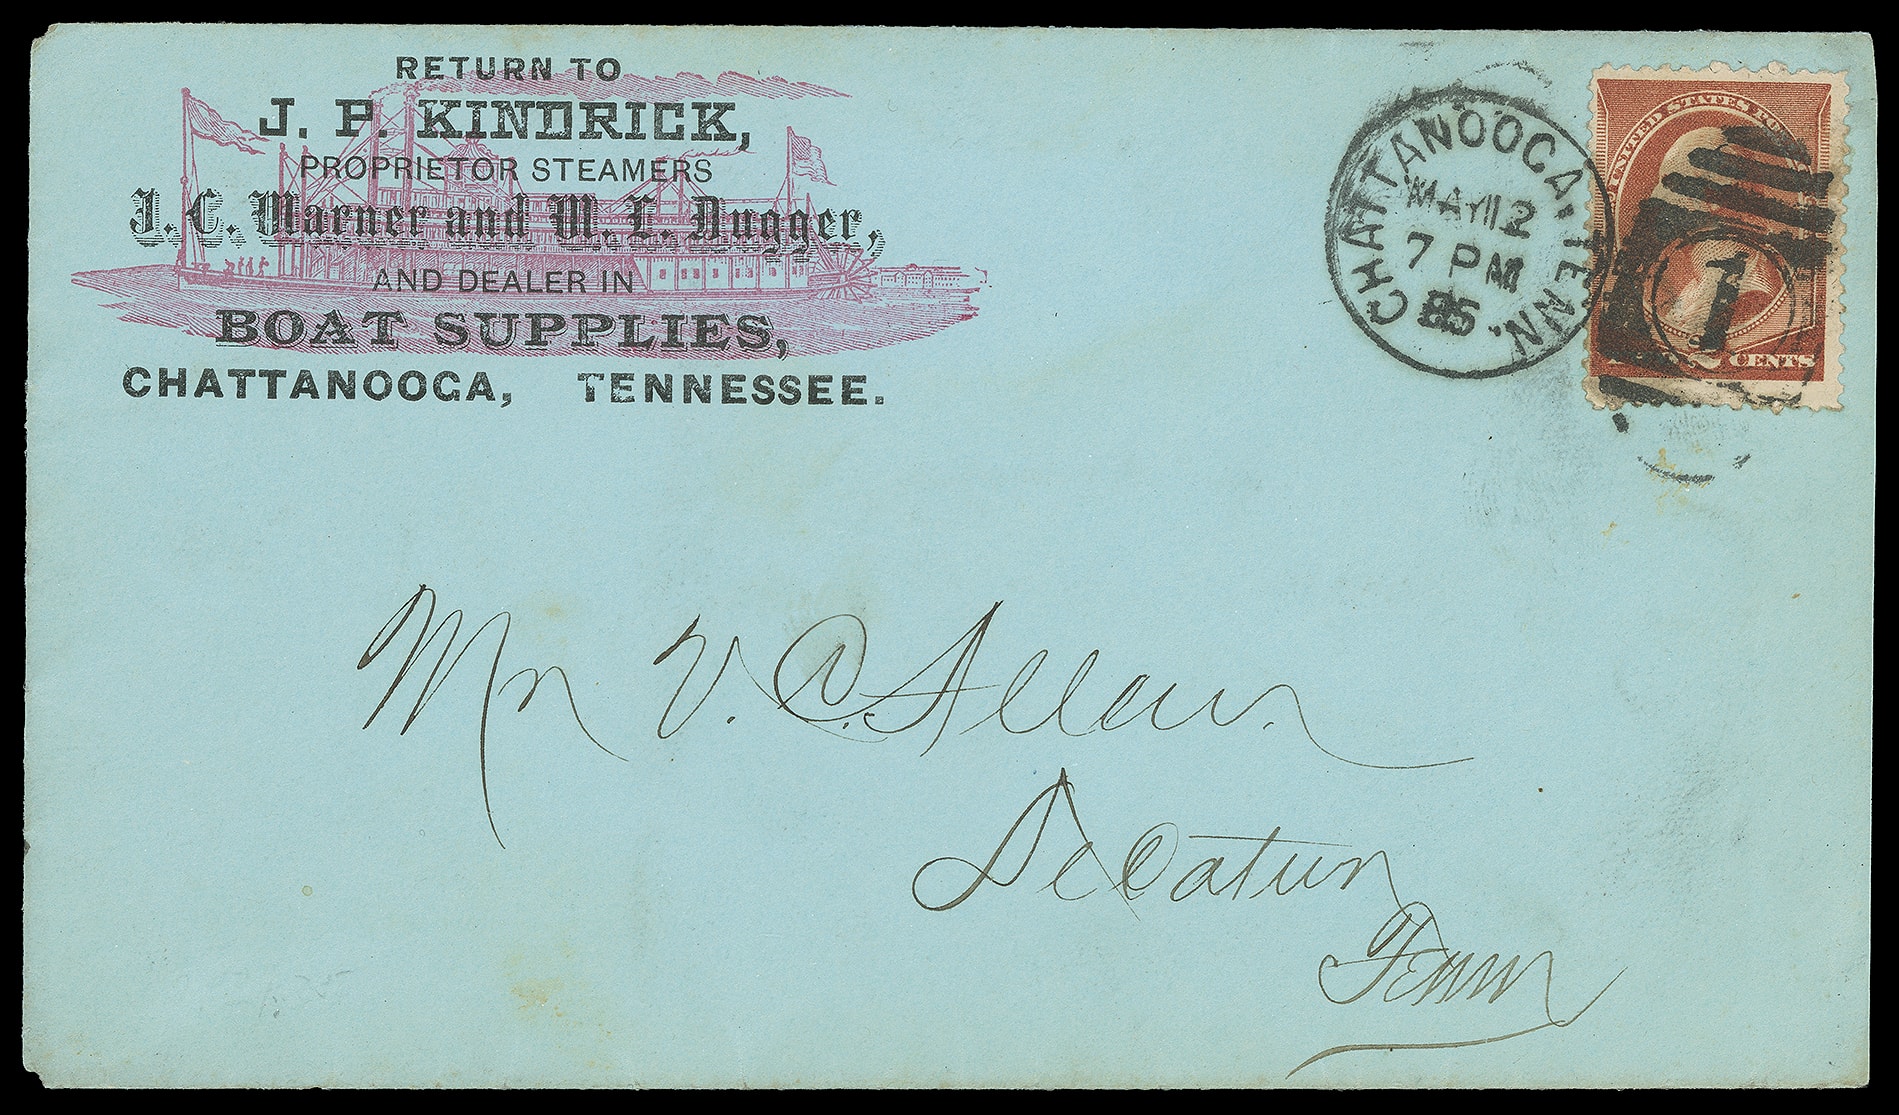 RETURN TO
J. P. KINDRICK,
PROPRIETOR STEAMERS
J. C. Warner and W. L. Dugger,
AND DEALER IN
BOAT SUPPLIES,
CHATTANOOGA, TENNESSEE.
CHATTANOOGA, TENN.
MAY 12
7 PM
85
UNITED STATES
1
2 CENTS
Mr V. C. Allen.
Decatur
Tenn